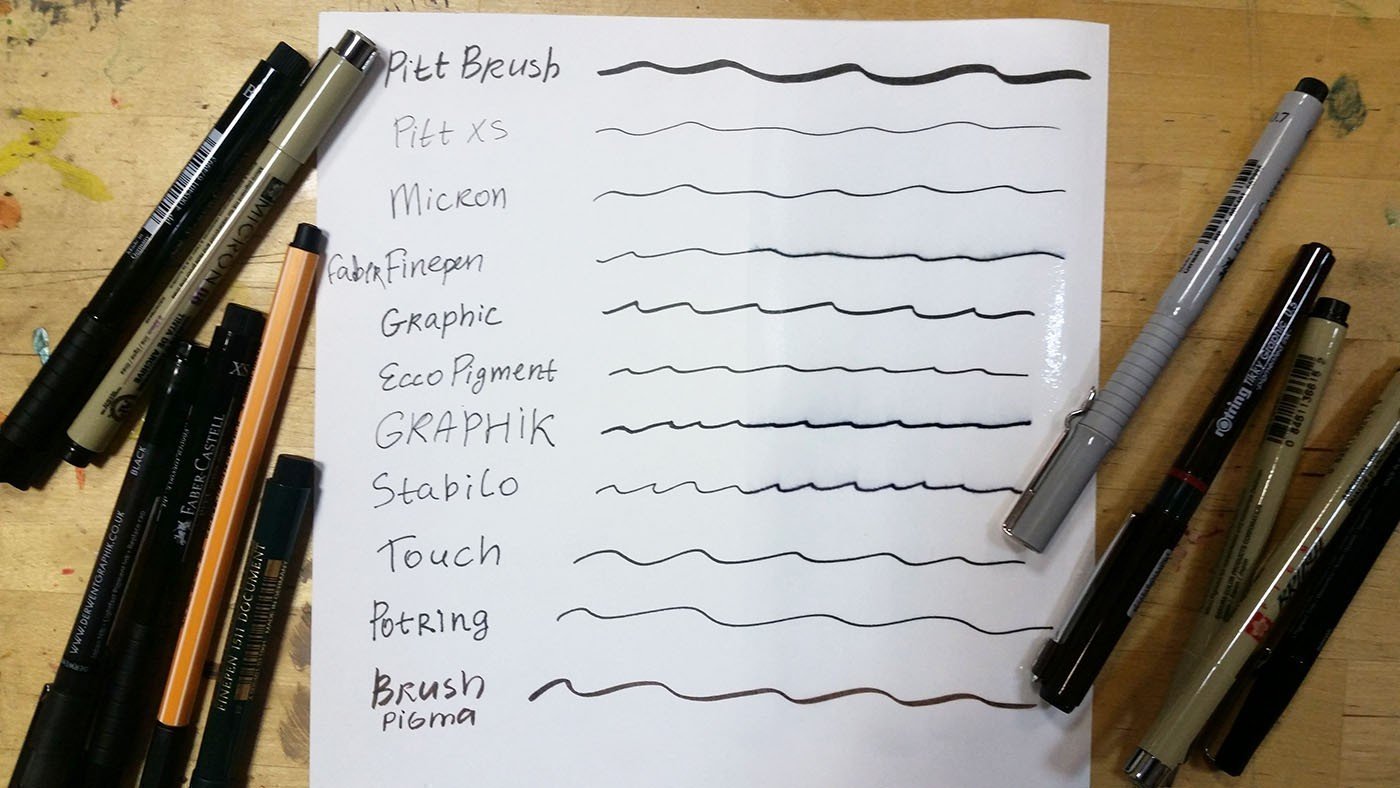 Pitt Brush
Pitt XS
Micron
Faber Finepen
Graphic
Ecco Pigment
GRAPHIK
Stabilo
Touch
Potring
Brush
Pigma
B
MICRON 08
BLACK
WWW.DERWENTGRAPHIK.CO.UK
DERWENT
XS
FABER-CASTELL
FINEPEN 1511 DOCUMENT
MADE IN GERMANY
0.7
rotring Tikky Graphic